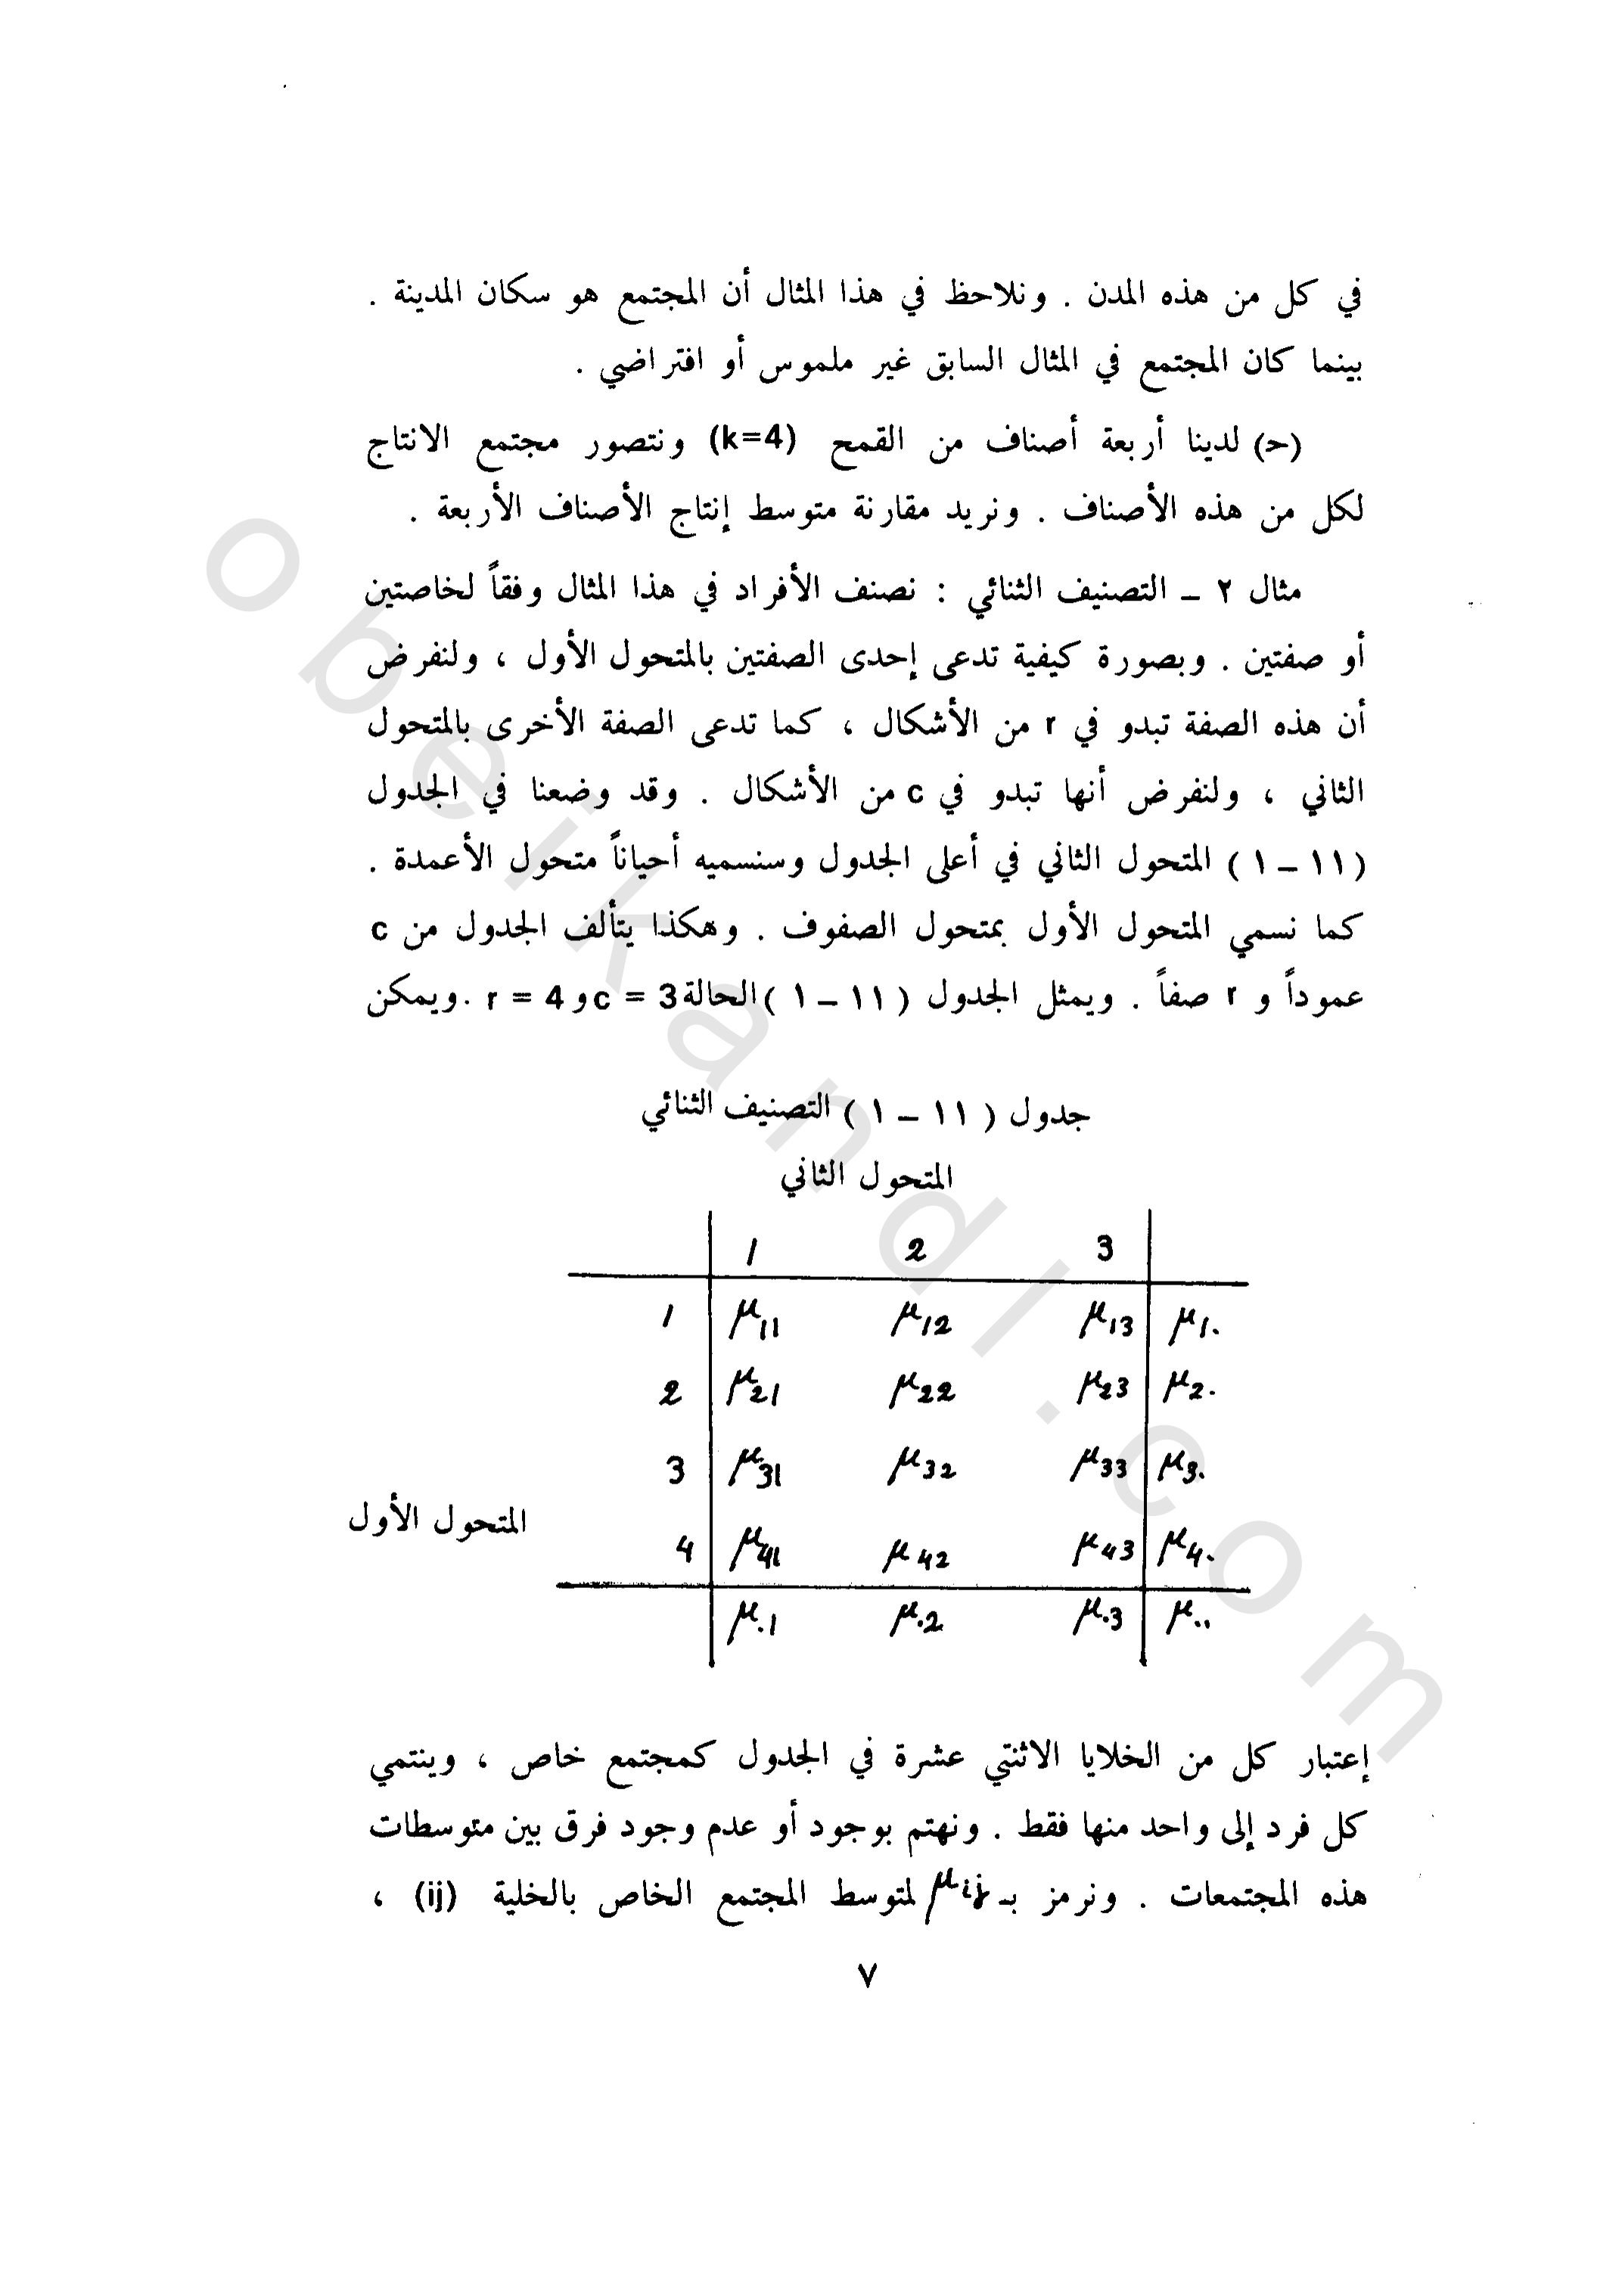 في كل من هذه المدن . ونلاحظ في هذا المثال أن المجتمع هو سكان المدينة .
بينما كان المجتمع في المثال السابق غير ملموس أو افتراضي .
(حـ) لدينا أربعة أصناف من القمح (k=4) ونتصور مجتمع الانتاج
لكل من هذه الأصناف . ونريد مقارنة متوسط إنتاج الأصناف الأربعة .
مثال ٢ ـ التصنيف الثنائي : نصنف الأفراد في هذا المثال وفقاً لخاصتين
أو صفتين . وبصورة كيفية تدعى إحدى الصفتين بالمتحول الأول ، ولنفرض
أن هذه الصفة تبدو في r من الأشكال ، كما تدعى الصفة الأخرى بالمتحول
الثاني ، ولنفرض أنها تبدو في c من الأشكال . وقد وضعنا في الجدول
( ١١ ـ ١ ) المتحول الثاني في أعلى الجدول وسنسميه أحياناً متحول الأعمدة .
كما نسمي المتحول الأول بمتحول الصفوف . وهكذا يتألف الجدول من c
عموداً و r صفاً . ويمثل الجدول ( ١١ ـ ١ ) الحالة c = 3 و r = 4 . ويمكن
جدول ( ١١ ـ ١ ) التصنيف الثنائي
المتحول الثاني
1 2 3
1 μ11 μ12 μ13 μ1.
2 μ21 μ22 μ23 μ2.
3 μ31 μ32 μ33 μ3.
المتحول الأول
4 μ41 μ42 μ43 μ4.
μ.1 μ.2 μ.3 μ..
إعتبار كل من الخلايا الاثنتي عشرة في الجدول كمجتمع خاص ، وينتمي
كل فرد إلى واحد منها فقط . ونهتم بوجود أو عدم وجود فرق بين متوسطات
هذه المجتمعات . ونرمز بـ μij لمتوسط المجتمع الخاص بالخلية (ij) ،
٧
obeikandl.com